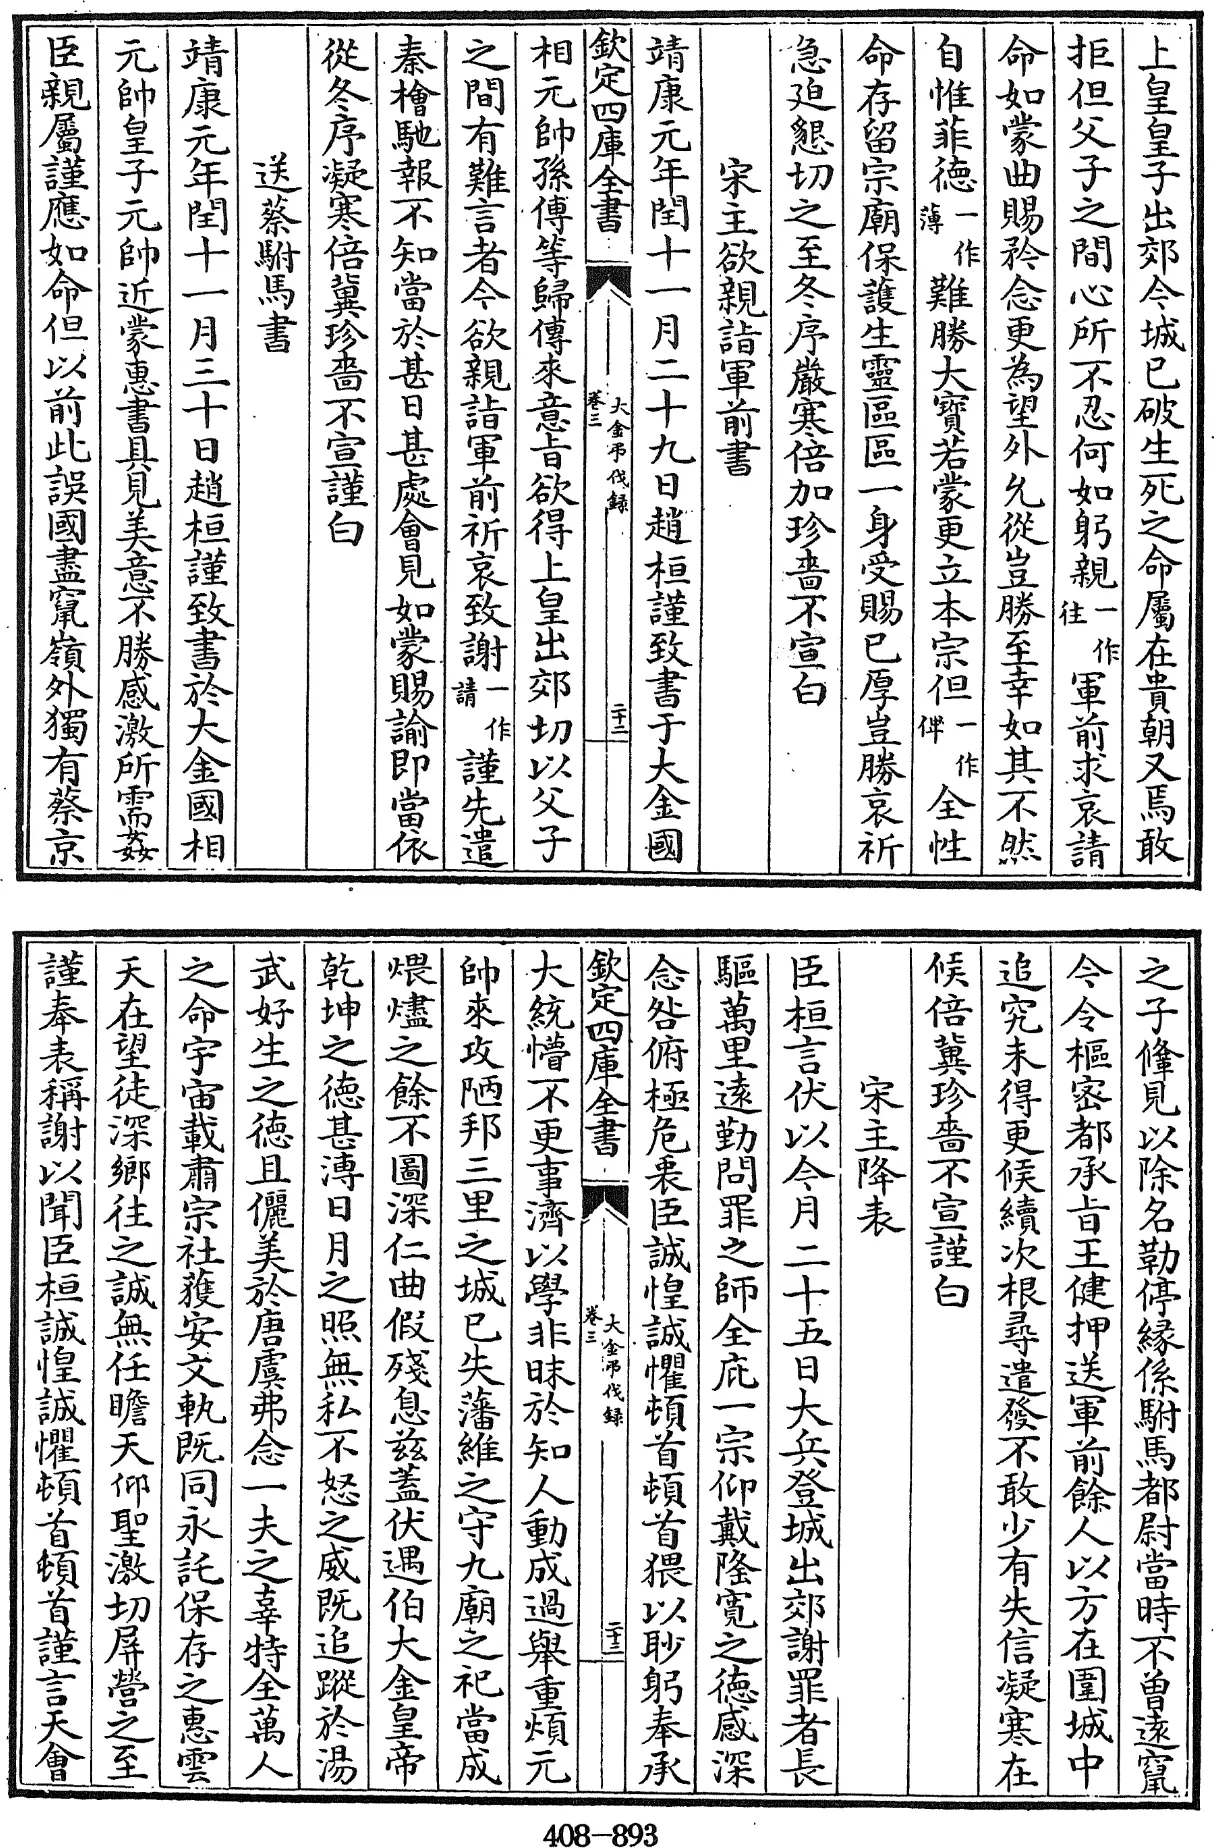 上皇皇子出郊今城已破生死之命屬在貴朝又焉敢
拒但父子之間心所不忍何如躬親一作往軍前求哀請
命如蒙曲賜矜念更為望外允從豈勝至幸如其不然
自惟菲德一作薄難勝大寶若蒙更立本宗但一作俾全性
命存留宗廟保護生靈區區一身受賜已厚豈勝哀祈
急廹懇切之至冬序嚴寒倍加珍嗇不宣白
宋主欲親詣軍前書
靖康元年閏十一月二十九日趙桓謹致書于大金國
欽定四庫全書
大金弔伐錄
卷三
二十二
相元帥孫傅等歸傳來意旨欲得上皇出郊切以父子
之間有難言者今欲親詣軍前祈哀致謝一作請謹先遣
秦檜馳報不知當於甚日甚處會見如蒙賜諭即當依
從冬序凝寒倍冀珍嗇不宣謹白
送蔡駙馬書
靖康元年閏十一月三十日趙桓謹致書於大金國相
元帥皇子元帥近蒙惠書具見美意不勝感激所需姦
臣親屬謹應如命但以前此誤國盡竄嶺外獨有蔡京
之子鞗見以除名勒停緣係駙馬都尉當時不曾遠竄
今令樞密都承旨王健押送軍前餘人以方在圍城中
追究未得更候續次根尋遣發不敢少有失信凝寒在
候倍冀珍嗇不宣謹白
宋主降表
臣桓言伏以今月二十五日大兵登城出郊謝罪者長
驅萬里遠勤問罪之師全庇一宗仰戴隆寛之德感深
念咎俯極危衷臣誠惶誠懼頓首頓首猥以眇躬奉承
欽定四庫全書
大金弔伐錄
卷三
二十三
大統懵不更事濟以學非昧於知人動成過舉重煩元
帥來攻陋邦三里之城已失藩維之守九廟之祀當成
煨燼之餘不圖深仁曲假殘息茲蓋伏遇伯大金皇帝
乾坤之德甚溥日月之照無私不怒之威既追蹤於湯
武好生之德且儷美於唐虞弗念一夫之辜特全萬人
之命宇宙載肅宗社獲安文軌既同永託保存之惠雲
天在望徒深鄉往之誠無任瞻天仰聖激切屏營之至
謹奉表稱謝以聞臣桓誠惶誠懼頓首頓首謹言天會
408-893